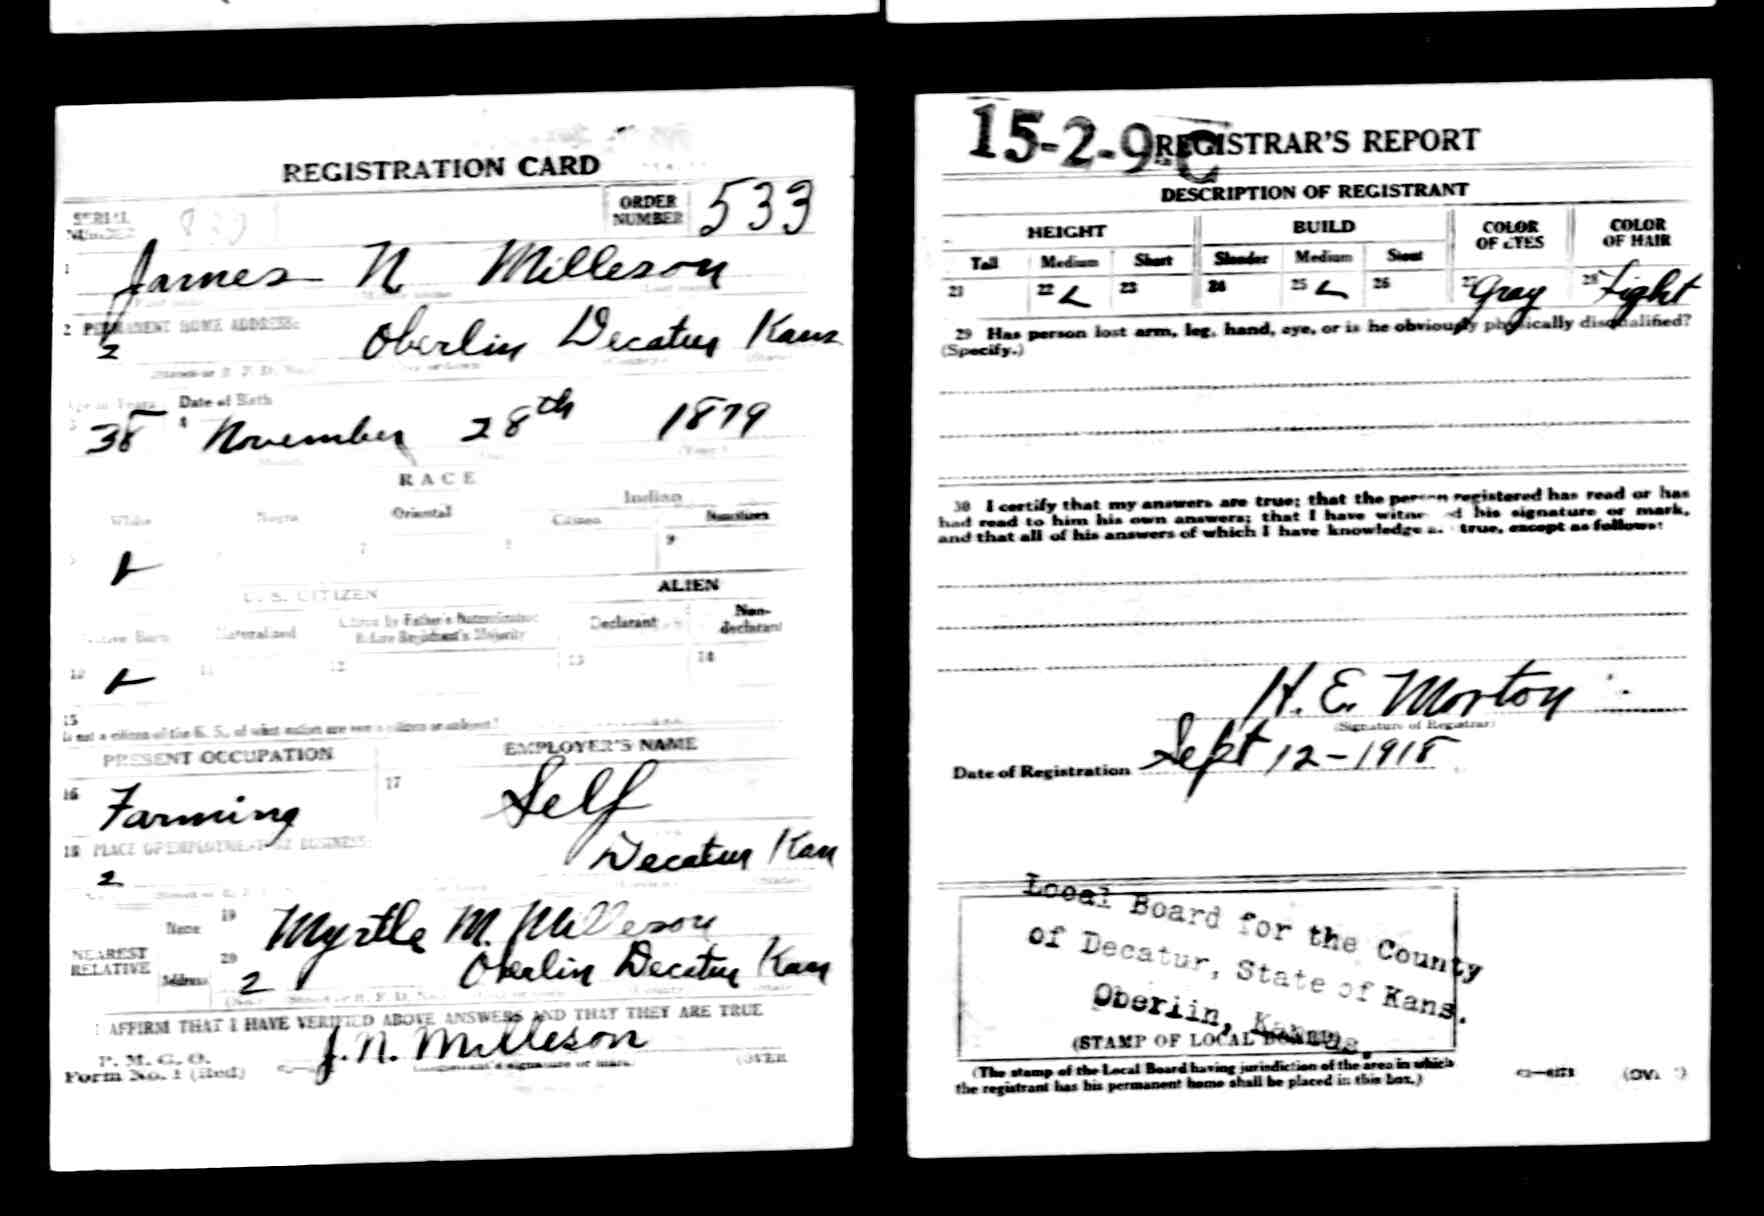 REGISTRATION CARD
SERIAL NUMBER
ORDER NUMBER 533
1 James N Milleson
2 PERMANENT HOME ADDRESS:
2 Oberlin Decatur Kans
Age in Years Date of Birth
3 38 4 November 28th 1879
RACE
White Negro Oriental Indian
Citizen Noncitizen
7 8 9
U. S. CITIZEN ALIEN
Native Born Naturalized Citizen by Father's Naturalization Before Registrant's Majority Declarant Non-declarant
10 11 12 13 14
15
If not a citizen of the U. S., of what nation are you a citizen or subject?
PRESENT OCCUPATION EMPLOYER'S NAME
16 Farming 17 Self
18 PLACE OF EMPLOYMENT OR BUSINESS:
2 Decatur Kan
NEAREST RELATIVE
Name 19 Myrtle M. Milleson
Address 20 2 Oberlin Decatur Kan
I AFFIRM THAT I HAVE VERIFIED ABOVE ANSWERS AND THAT THEY ARE TRUE
P. M. G. O.
Form No. 1 (Red) J. N. Milleson
(Registrant's signature or mark) (OVER
15-2-9 C
REGISTRAR'S REPORT
DESCRIPTION OF REGISTRANT
HEIGHT BUILD COLOR OF EYES COLOR OF HAIR
Tall Medium Short Slender Medium Stout
21 22 23 24 25 26 27 Gray 28 Light
29 Has person lost arm, leg, hand, eye, or is he obviously physically disqualified?
(Specify.)
30 I certify that my answers are true; that the person registered has read or has
had read to him his own answers; that I have witnessed his signature or mark,
and that all of his answers of which I have knowledge are true, except as follows:
H. E. Morton
(Signature of Registrar)
Date of Registration Sept 12-1918
Local Board for the County
of Decatur, State of Kans.
Oberlin, Kansas.
(STAMP OF LOCAL BOARD)
(The stamp of the Local Board having jurisdiction of the area in which
the registrant has his permanent home shall be placed in this box.)
(OVER)